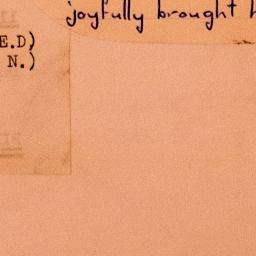 joyfully brought
E.D)
N.)